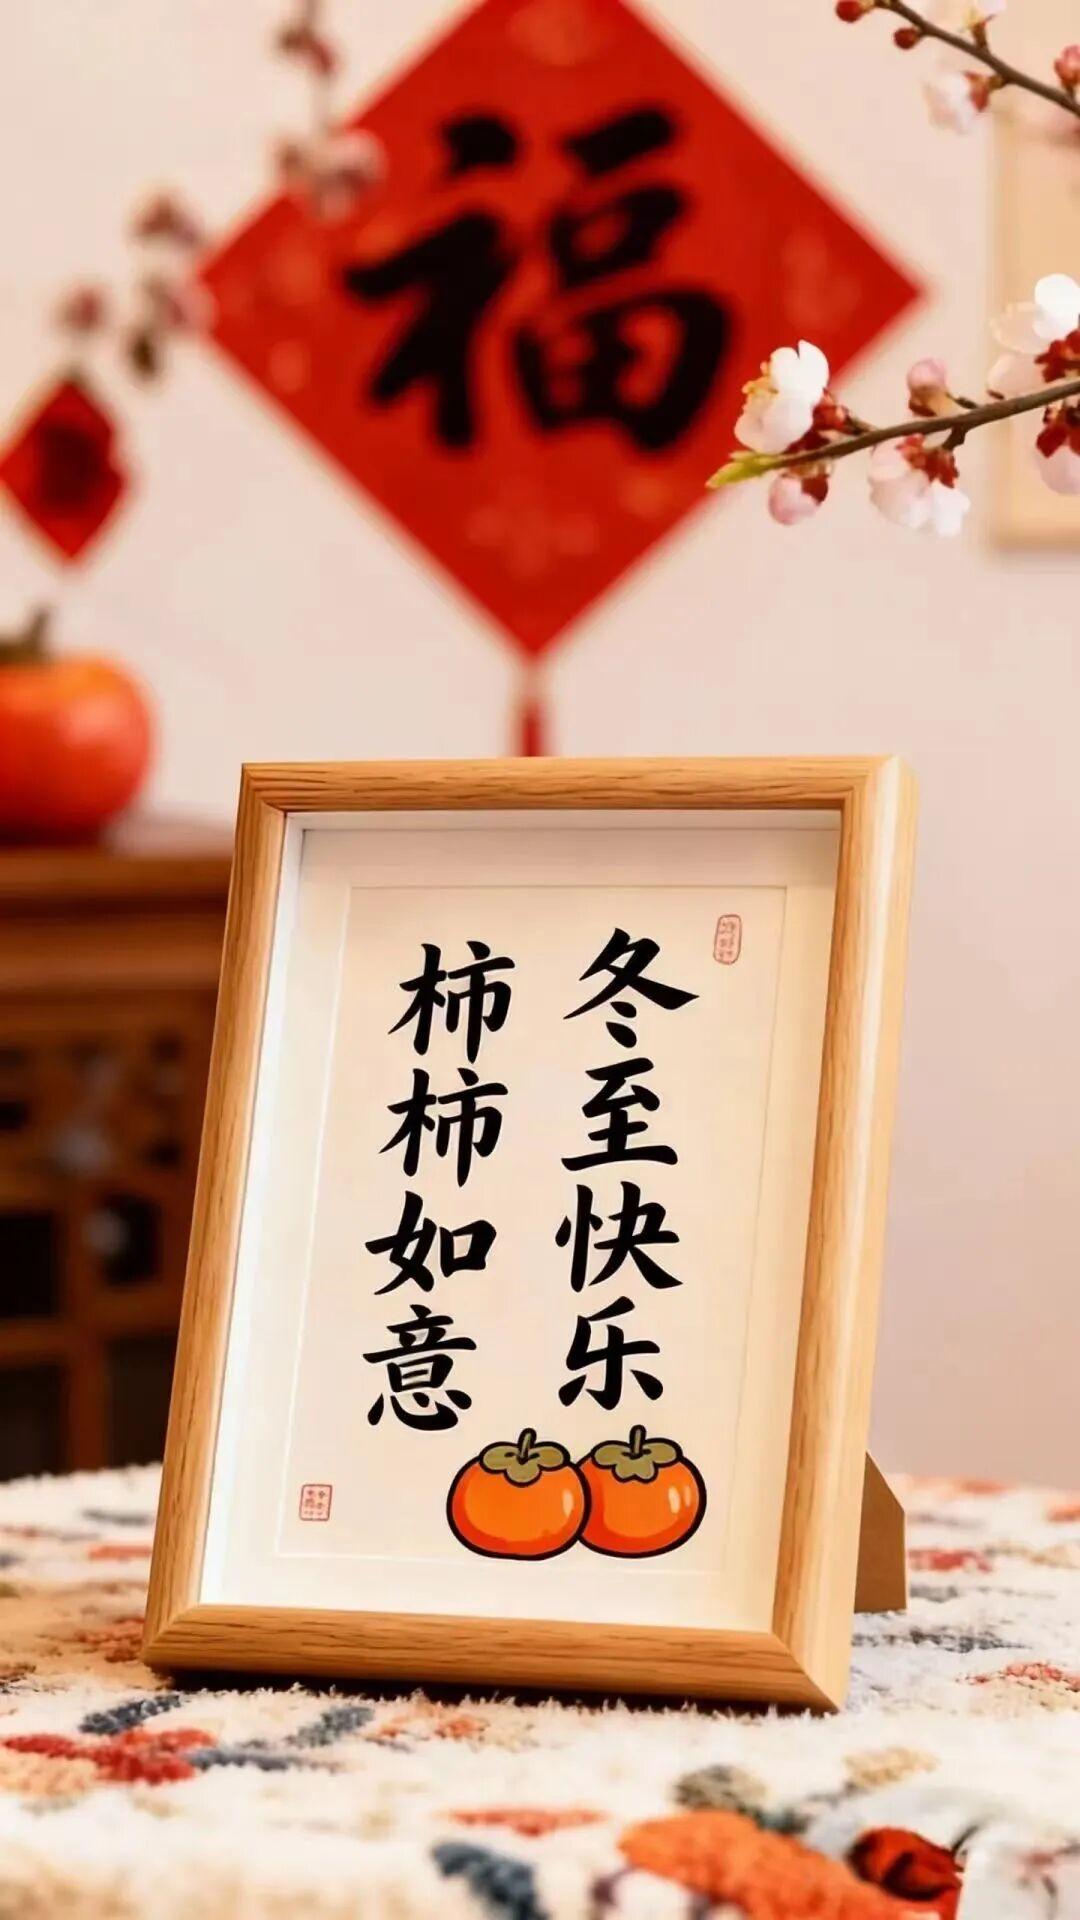 福
冬至快乐
柿柿如意